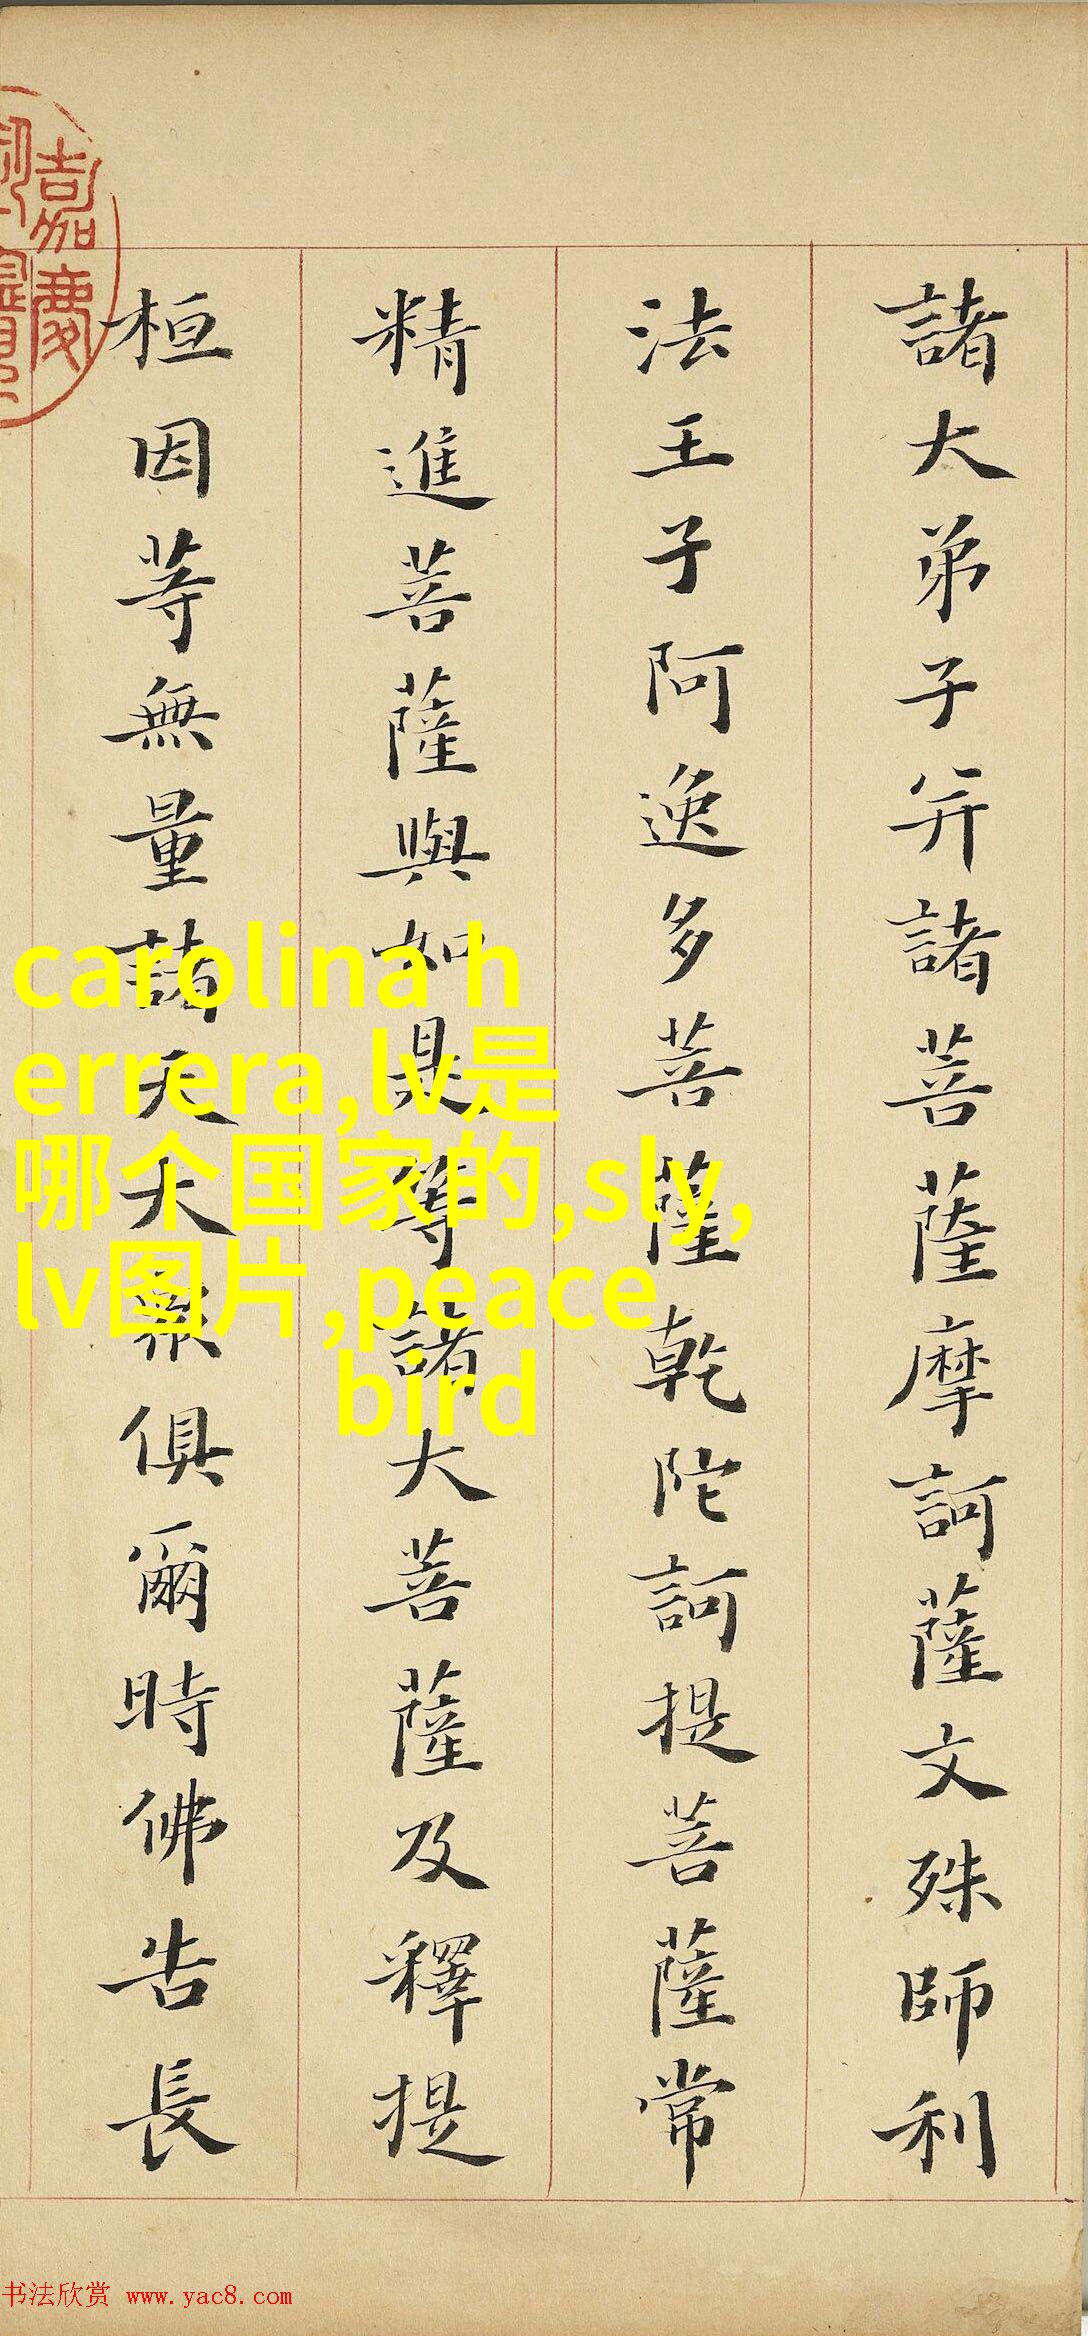 諸大弟子并諸菩薩摩訶薩文殊師利
法王子阿逸多菩薩乾陀訶提菩薩常
精進菩薩與如是等諸大菩薩及釋提
桓因等無量諸天大眾俱爾時佛告長
嘉慶
carolina h
errera,lv是
哪个国家的,sly,
lv图片,peace
bird
书法欣赏 www.yac8.com